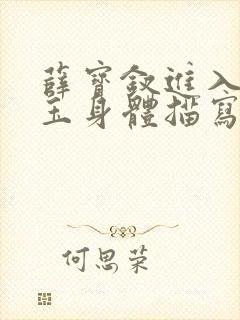 薛寶釵進入
玉身體描寫
何思荣